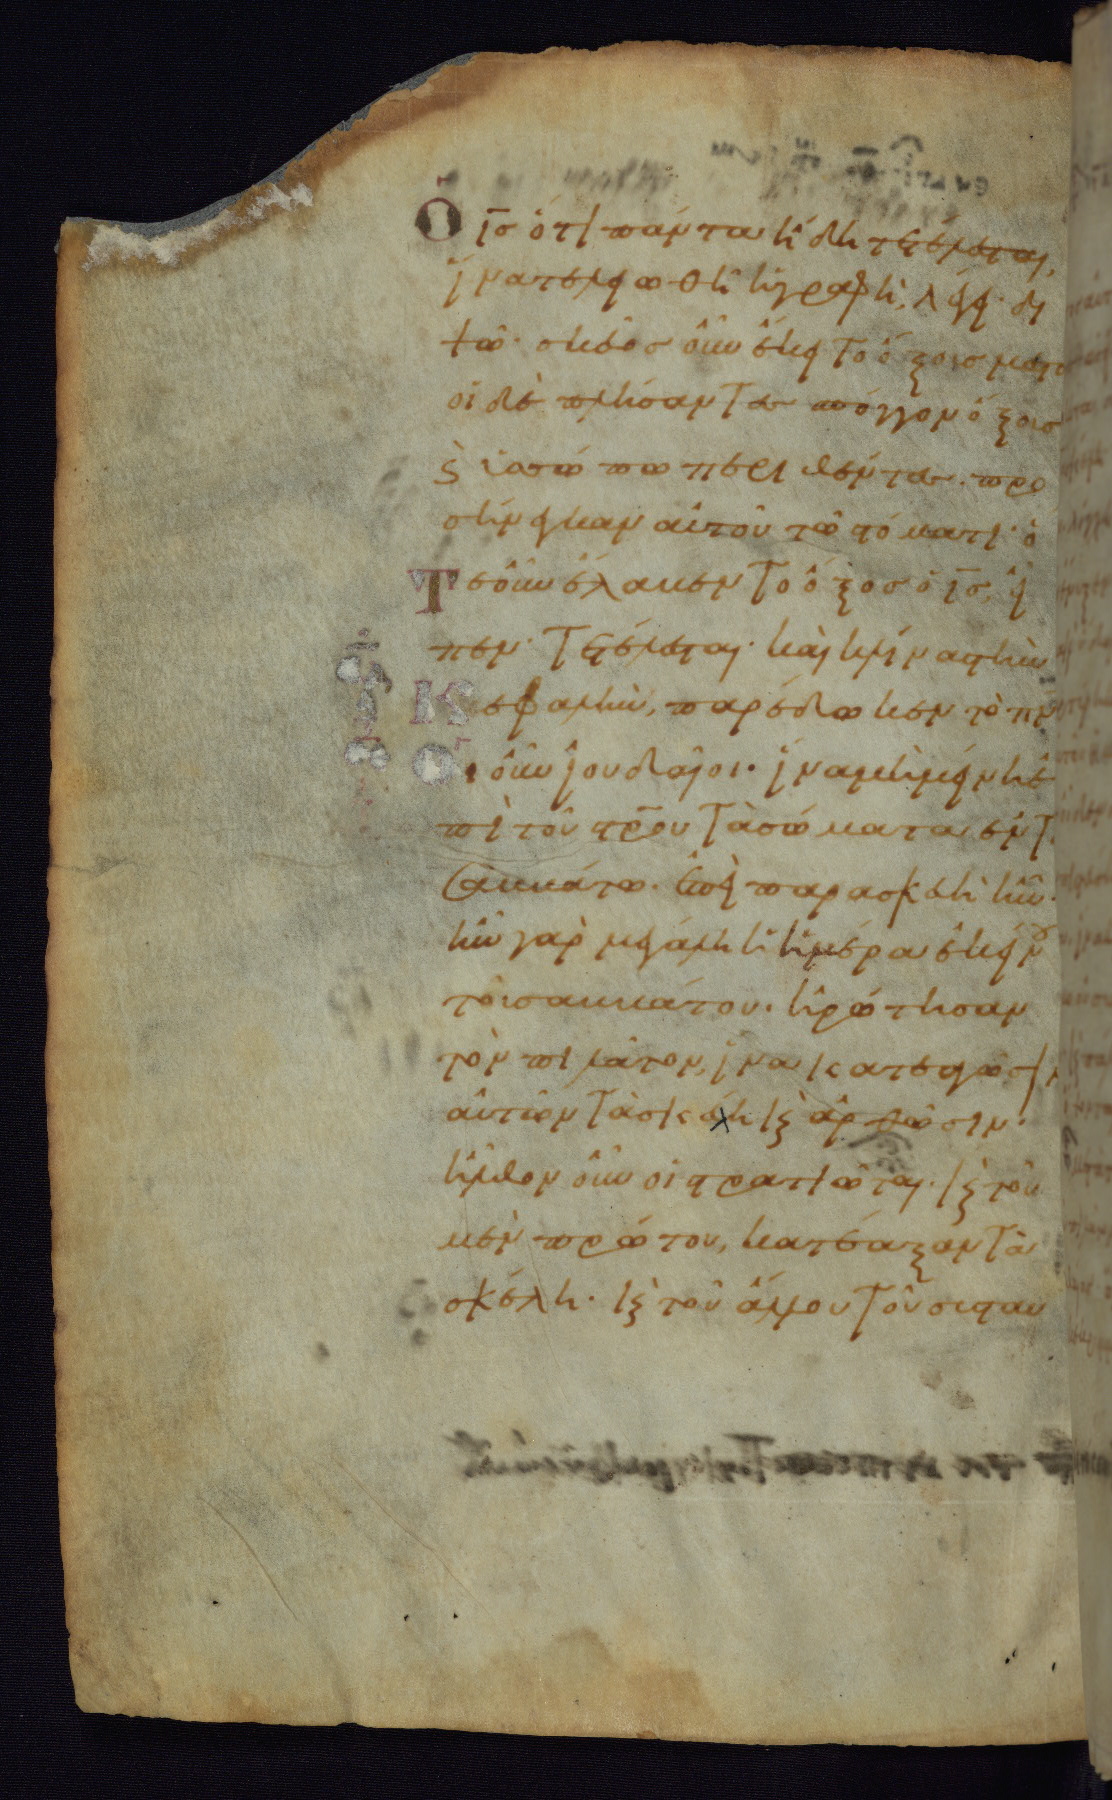 Ὁ ις ὅτι πάντα ἤδη τετέλεσται,
ἵνα τελειωθῆ ἡ γραφὴ, λέγει· δι
ψῶ· σκεῦος οὖν ἔκειτο ὄξους μεστὸ
οἱ δὲ πλήσαντες σπόγγον ὄξους
κ ὑσσώπω περιθέντες· προ
σήνεγκαν αὐτοῦ τῶ στόματι· ὅ
τε οὖν ἔλαβεν τὸ ὄξος ὁ ις, εἶ
πεν· τετέλεσται· καὶ κλίνας τὴν
κεφαλὴν, παρέδωκεν τὸ πνα
Οἱ οὖν ἰουδαῖοι· ἵνα μὴ μείνη ἐ
πὶ τοῦ στρου τὰ σώματα ἐν τ
σαββάτω· ἐπεὶ παρασκευὴ ἦν·
ἦν γὰρ μεγάλη ἡ ἡμέρα ἐκείνου
τοῦ σαββάτου· ἠρώτησαν
τὸν πιλάτον, ἵνα κατεαγῶσιν
αὐτῶν τὰ σκέλη κ ἀρθῶσιν·
ἦλθον οὖν οἱ στρατιῶται· κ τοῦ
μὲν πρώτου, κατέαξαν τὰ
σκέλη· κ τοῦ ἄλλου τοῦ συσταυ